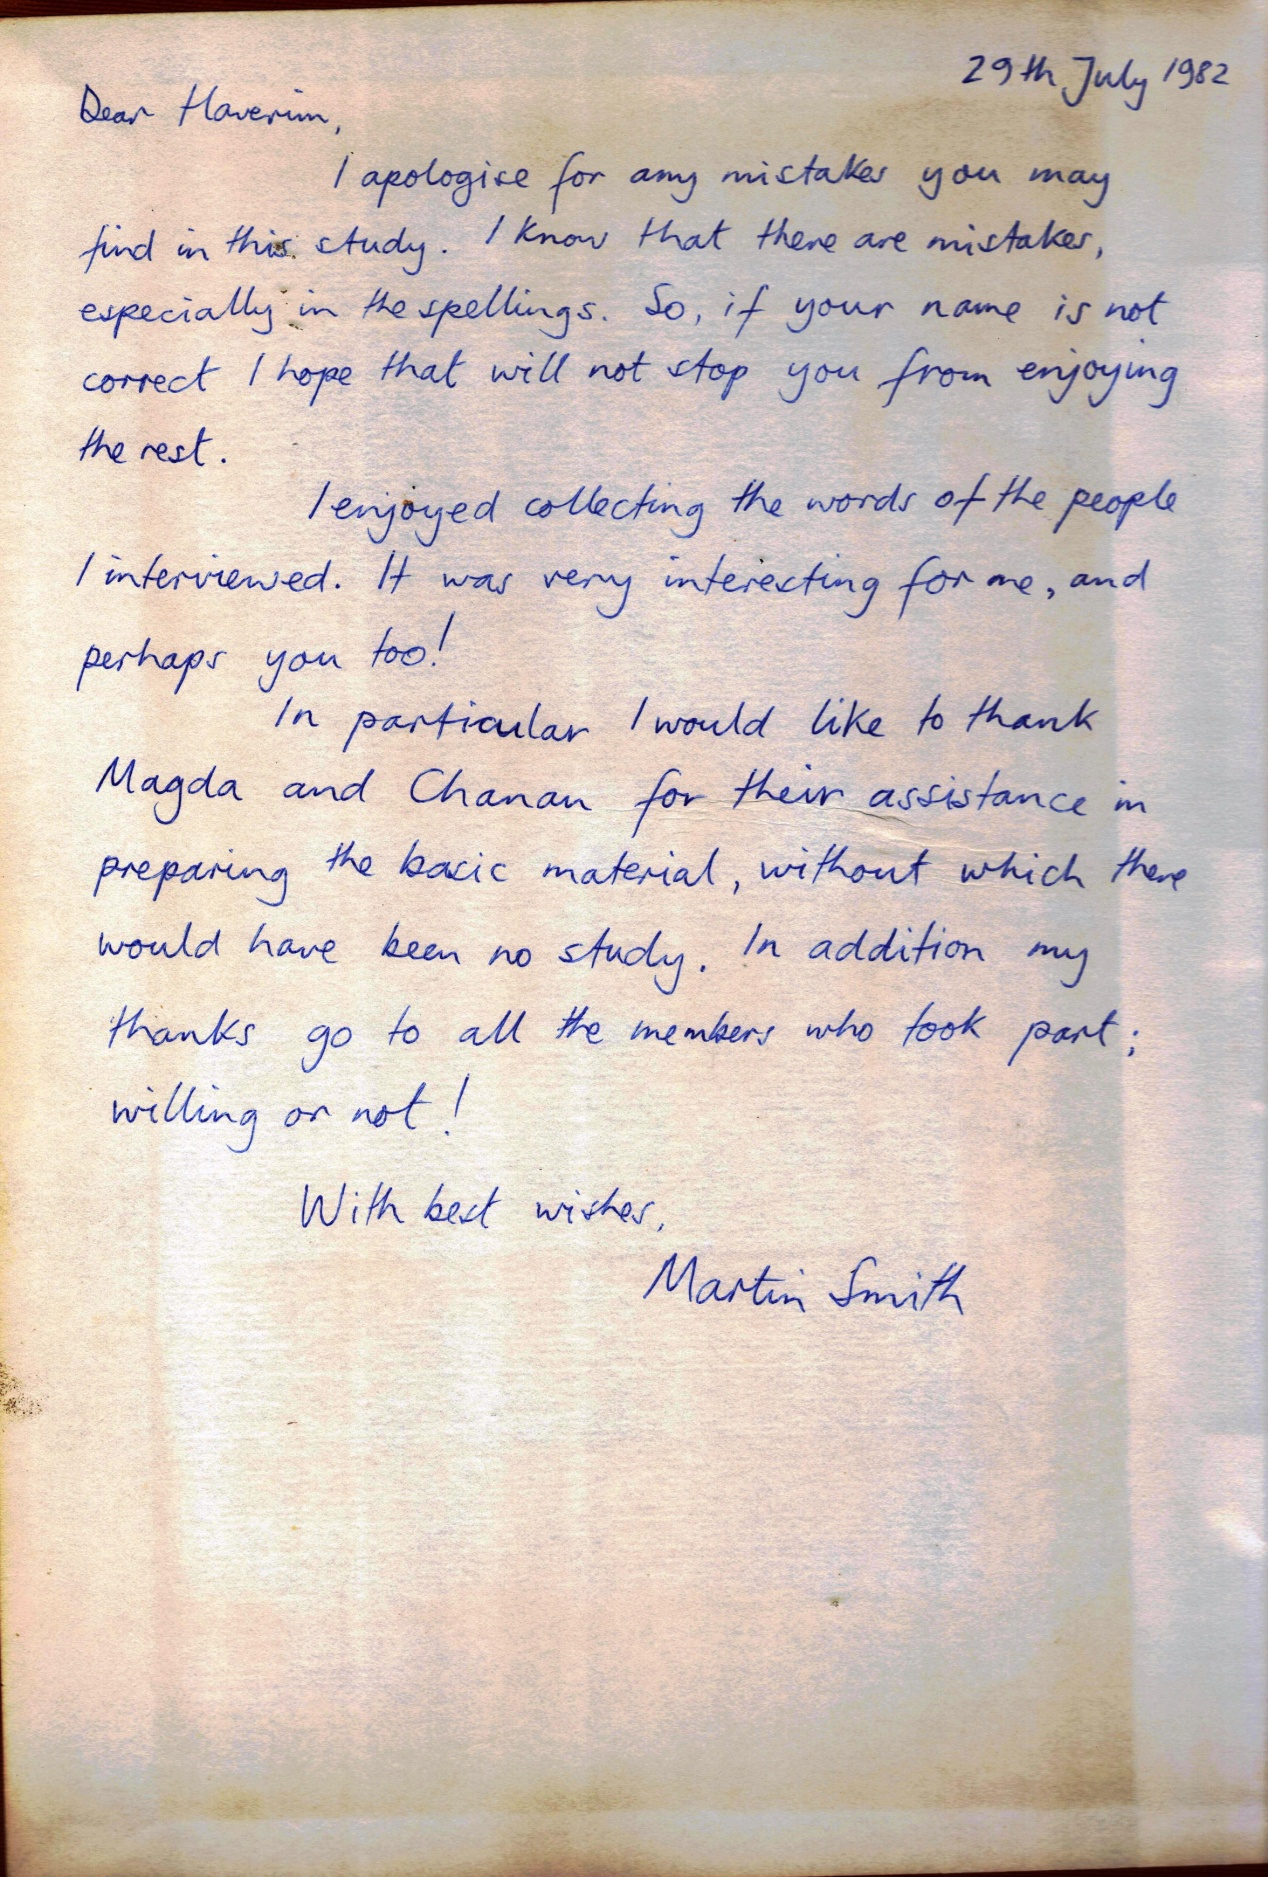 29th July 1982
Dear Haverim,
I apologise for any mistakes you may
find in this study. I know that there are mistakes,
especially in the spellings. So, if your name is not
correct I hope that will not stop you from enjoying
the rest.
I enjoyed collecting the words of the people
I interviewed. It was very interesting for me, and
perhaps you too!
In particular I would like to thank
Magda and Chanan for their assistance in
preparing the basic material, without which there
would have been no study. In addition my
thanks go to all the members who took part;
willing or not!
With best wishes,
Martin Smith